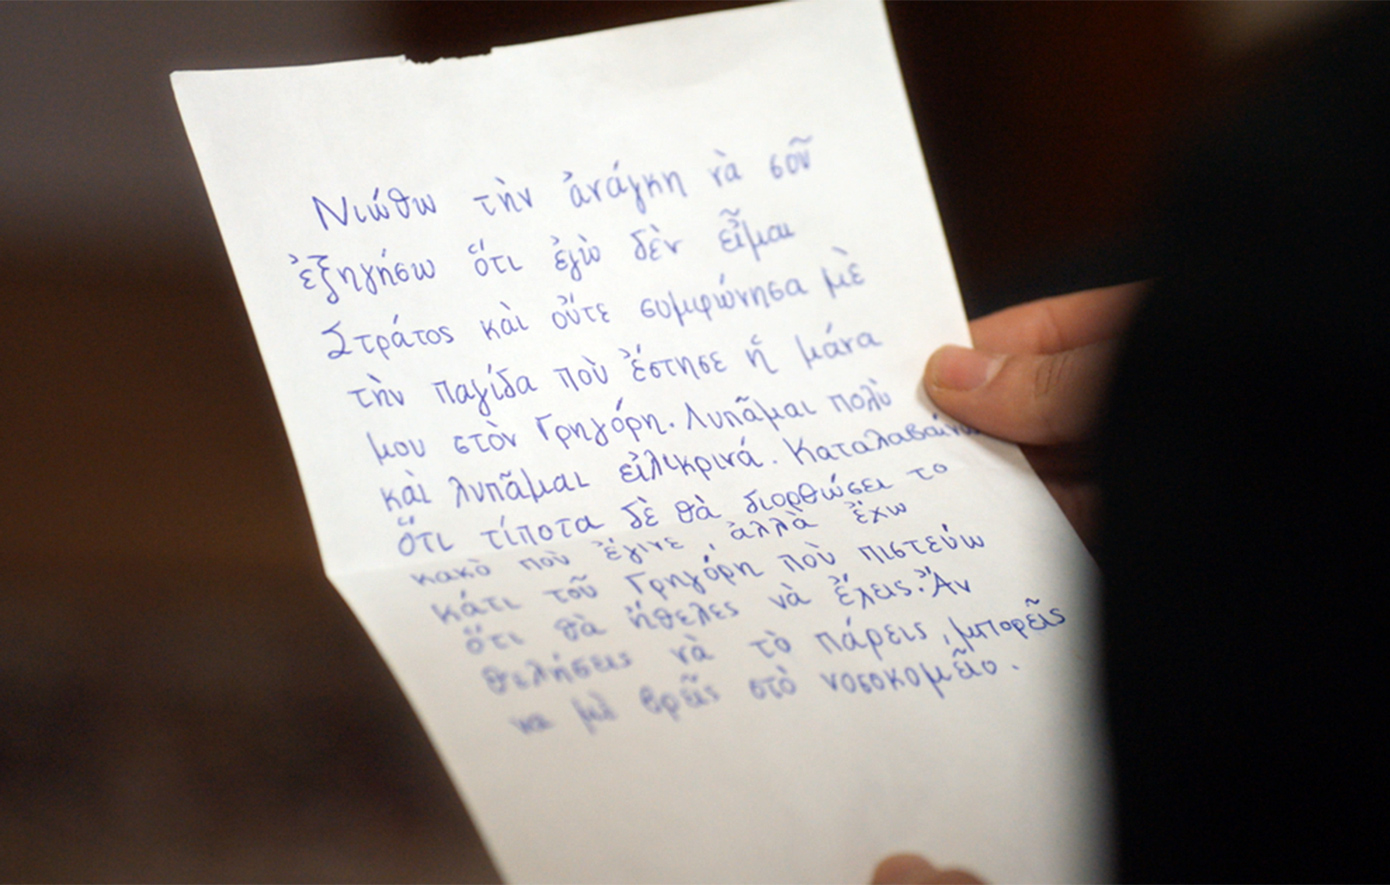 Νιώθω τὴν ἀνάγκη νὰ σοῦ
ἐξηγήσω ὅτι ἐγὼ δὲν εἶμαι
Στράτος καὶ οὔτε συμφώνησα μὲ
τὴν παγίδα ποὺ ἔστησε ἡ μάνα
μου στὸν Γρηγόρη. Λυπᾶμαι πολὺ
καὶ λυπᾶμαι εἰλικρινά. Καταλαβαίνω
ὅτι τίποτα δὲ θὰ διορθώσει το
κακὸ ποὺ ἔγινε, ἀλλὰ ἔχω
κάτι τοῦ Γρηγόρη ποὺ πιστεύω
ὅτι θὰ ἤθελες νὰ ἔχεις. Ἂν
θελήσεις νὰ τὸ πάρεις, μπορεῖς
να μὲ βρεῖς στὸ νοσοκομεῖο.